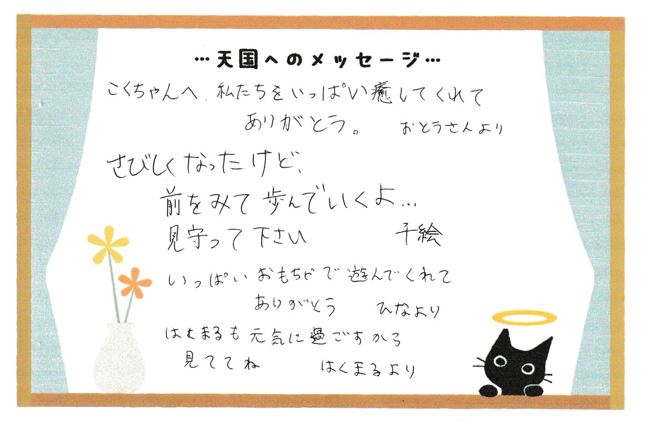 …天国へのメッセージ…
こくちゃんへ、私たちをいっぱい癒してくれて
ありがとう。 おとうさんより
さびしくなったけど、
前をみて歩んでいくよ…
見守って下さい 千絵
いっぱいおもちゃで遊んでくれて
ありがとう ひなより
はくまるも元気に過ごすから
見ててね はくまるより